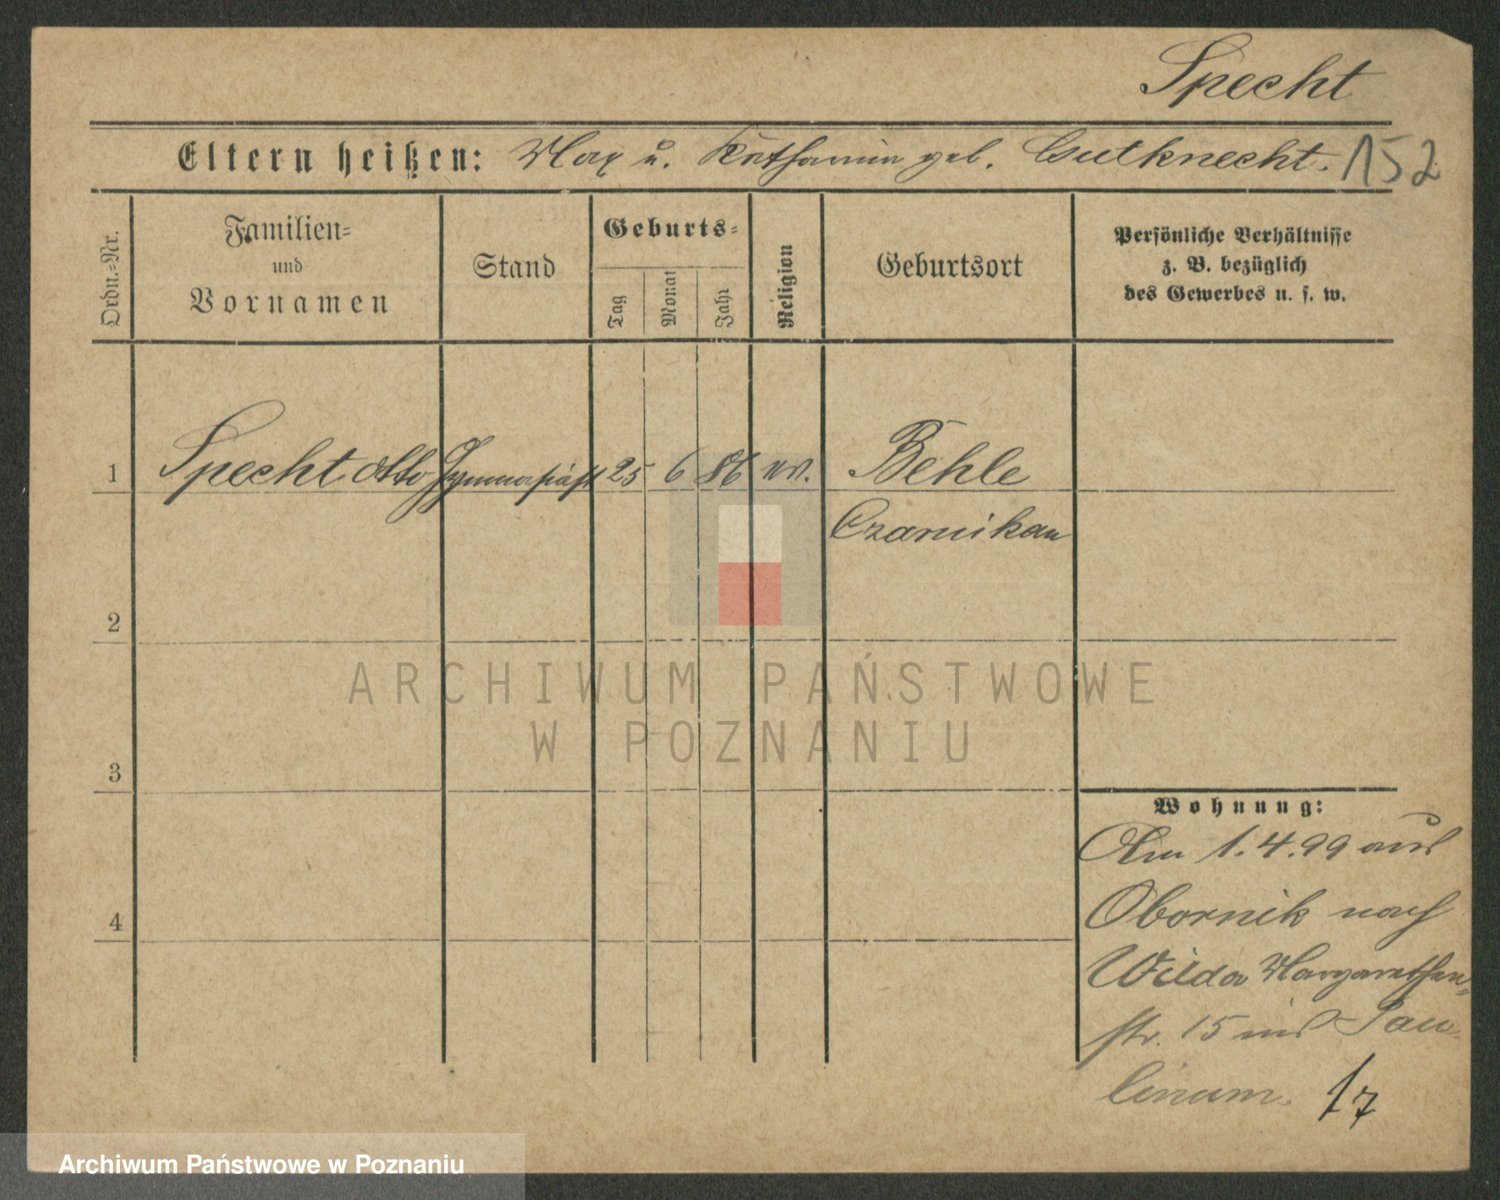 Specht
Eltern heißen: Max u. Katharina geb. Gutknecht. 152
Ordn.=Nr.
Familien=
und
Vornamen
Stand
Geburts=
Tag
Monat
Jahr
Religion
Geburtsort
Persönliche Verhältnisse
z. B. bezüglich
des Gewerbes u. s. w.
1 Specht Otto Gymnasiast 25 6 86 ev. Behle
Czarnikau
2
3
4
Wohnung:
Am 1.4.99 aus
Obornik nach
Wilda Margarethen=
str. 15 ins Pau-
linum. 17
ARCHIWUM PAŃSTWOWE
W POZNANIU
Archiwum Państwowe w Poznaniu